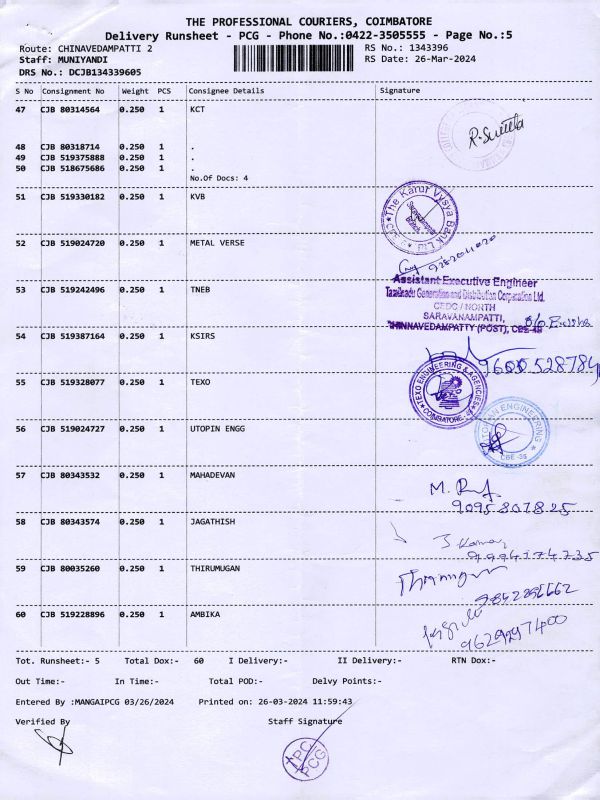 THE PROFESSIONAL COURIERS, COIMBATORE
Delivery Runsheet - PCG - Phone No.:0422-3505555 - Page No.:5
Route: CHINAVEDAMPATTI 2 RS No.: 1343396
Staff: MUNIYANDI RS Date: 26-Mar-2024
DRS No.: DCJB134339605
S No Consignment No Weight PCS Consignee Details Signature
47 CJB 80314564 0.250 1 KCT
48 CJB 80318714 0.250 1 .
49 CJB 519375888 0.250 1 .
50 CJB 518675686 0.250 1 .
No.Of Docs: 4
51 CJB 519330182 0.250 1 KVB
The Karur Vysya Bank Ltd
52 CJB 519024720 0.250 1 METAL VERSE
53 CJB 519242496 0.250 1 TNEB
Assistant Executive Engineer
Tamilnadu Generation and Distribution Corporation Ltd.
CEDC / NORTH
SARAVANAMPATTI,
CHINNAVEDAMPATTY (POST), CBE-49
54 CJB 519387164 0.250 1 KSIRS
9600528784
55 CJB 519328077 0.250 1 TEXO
TEXO ENGINEERING & AGENCIES
COIMBATORE
56 CJB 519024727 0.250 1 UTOPIN ENGG
ENGINEERING
57 CJB 80343532 0.250 1 MAHADEVAN
9095807825
58 CJB 80343574 0.250 1 JAGATHISH
J. Kumar
9994174735
59 CJB 80035260 0.250 1 THIRUMUGAN
9842296662
60 CJB 519228896 0.250 1 AMBIKA
9629297400
Tot. Runsheet:- 5 Total Dox:- 60 I Delivery:- II Delivery:- RTN Dox:-
Out Time:- In Time:- Total POD:- Delvy Points:-
Entered By :MANGAIPCG 03/26/2024 Printed on: 26-03-2024 11:59:43
Verified By Staff Signature
TPC
PCG